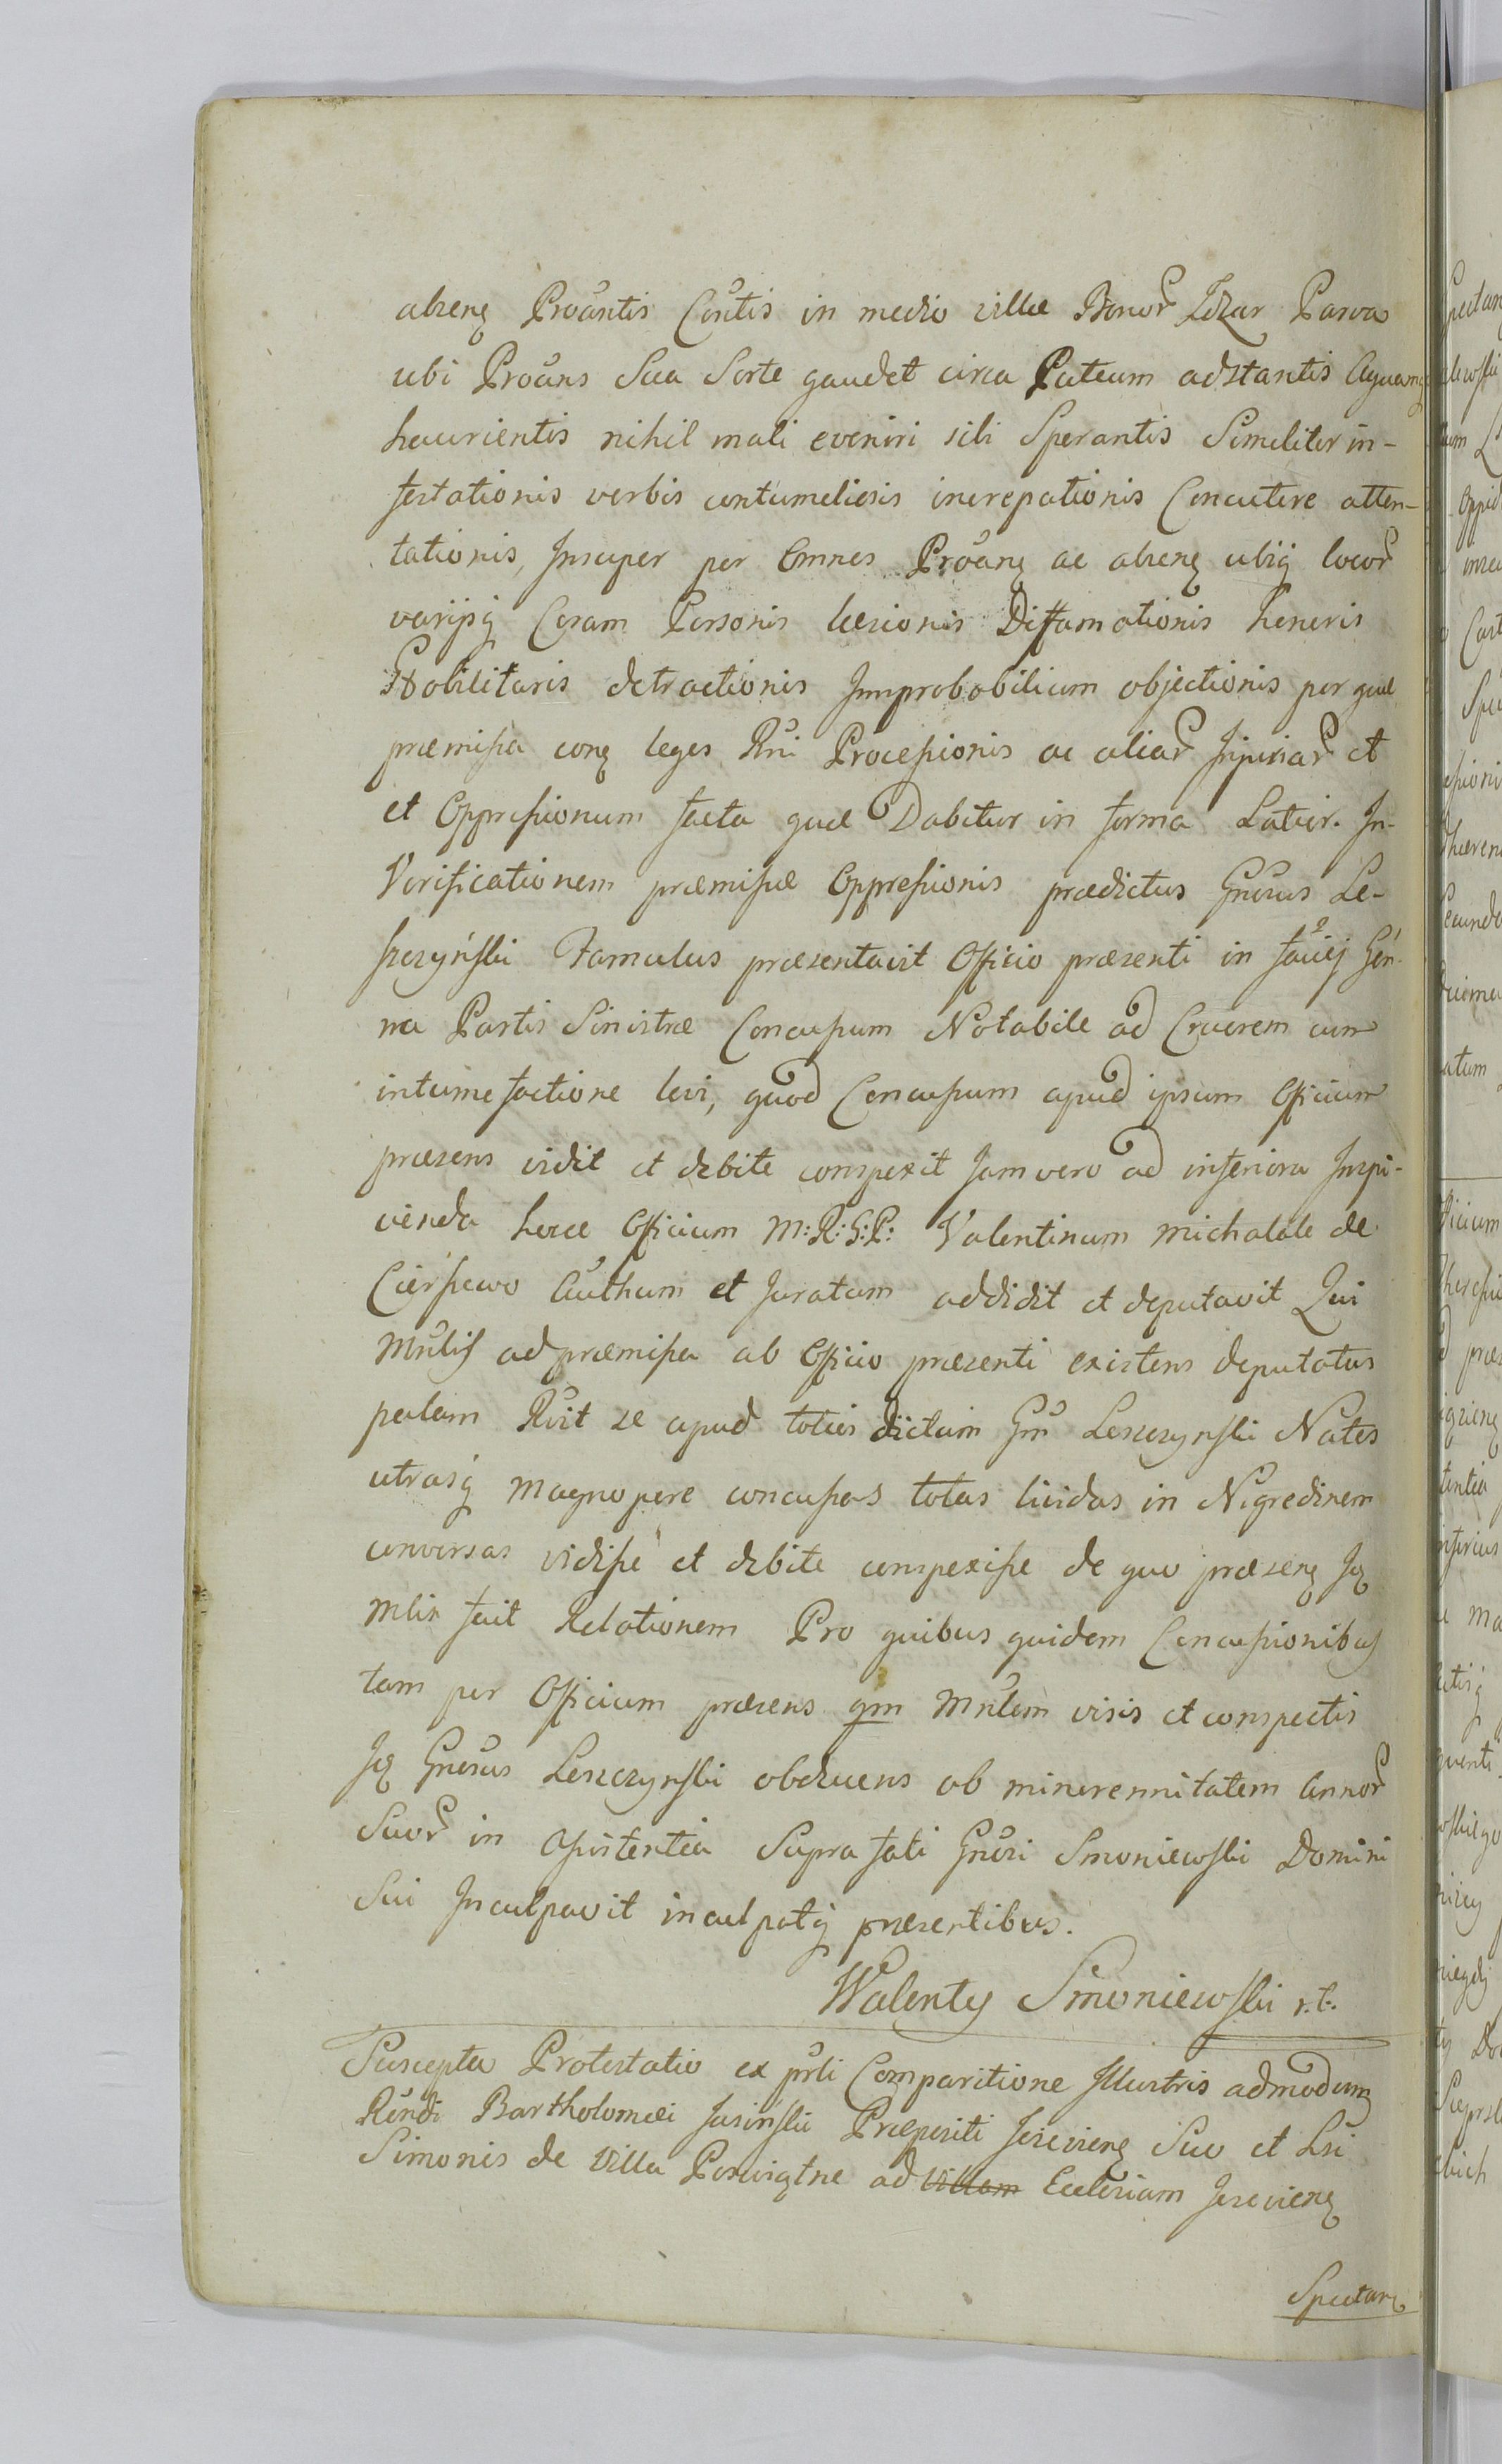 absenq Proántis Contis in medio villæ Bonor Zdzar Parva
ubi Proáns Sua Sorte gaudet circa Puteum adstantis Aquamq
haurientis nihil mali eveniri sibi Sperantis Similiter in-
festationis verbis contumeliosis increpationis Concutere atten-
tationis, Insuper per Omnes Proánq ac absenq ubiq locor
varijsq Coram Personis læsionis Diffamationis honeris
Nobilitaris detractionis Improbabilium objectionis per quæ
præmissa conq leges Rni Processionis ac aliar Injuriar et
et Oppressionum facta quæ Dabitur in forma Latior. In-
Verificationem præmissæ Oppressionis prædictus Gnosus Le-
szczyński Famulus præsentavit Officio præsenti in faciej Gen-
na Partis Sinistræ Concussum Notabile ad Cruorem cum
intumefactione levi, quod Concussum apud ipsum Officium
præsens vidit et debite conspexit Jam vero ad inferiora Inspi-
cienda hocce Officium M: R: G: P: Valentinum Michalak de
Cierszewo Authum et Juratum addidit et deputavit Qui
Mnlis ad præmissa ab Officio præsenti existens deputatus
palam Rvit se apud toties dictum Gm Leszczynski Nates
utrasq magnopere concussas totas lividas in Nigredinem
conversas vidisse et debite conspexisse de quo præsenq Iq
Mlis fecit Relationem Pro quibus quidem Concussionibus
tam per Officium præsens qm Mnlem visis et conspectis
Iq Gnosus Leszczynski obducens ob minorennitatem Annor
Suor in Assistentia Supra fati Gnosi Smoniewski Domini
Sui Inculpavit inculpatq præsentibus.
Walenty Smoniewski r. t.
Suscepta Protestatio ex prli Comparitione Illustris admodum
Rendi Bartholomæi Jasiński Præpositi Jezevienq Suo et Lsi
Simonis de Villa ad Villam Ecclesiam Jezevienq
Spectanq